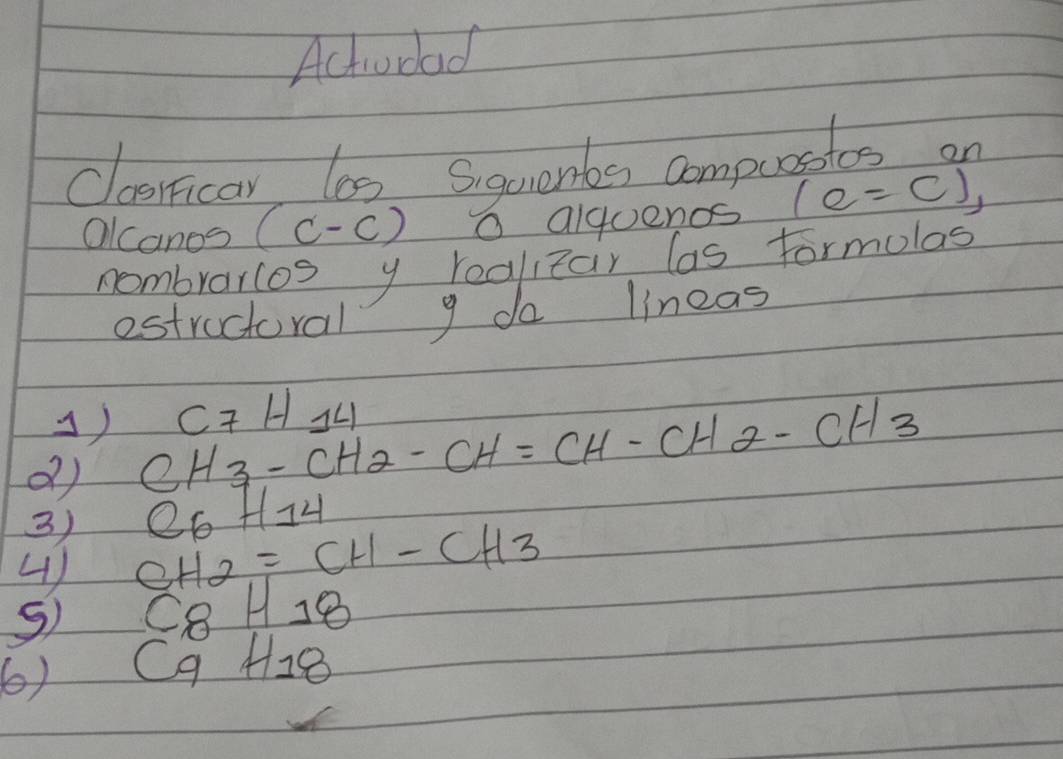 Actividad
Clasificar los Siguientes Compuestos en
alcanos (C-C) o alquenos (C=C),
nombrarlos y realizar las fórmulas
estructural y de lineas
1) C7 H 14
2) CH3 - CH2 - CH = CH - CH2 - CH3
3) C6 H14
4) CH2 = CH - CH3
5) C8 H 18
6) C9 H18